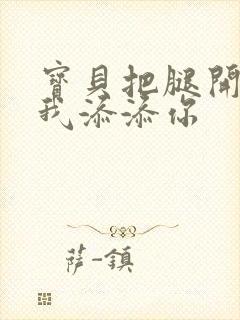 寶貝把腿開
我添添你
薩-鎮